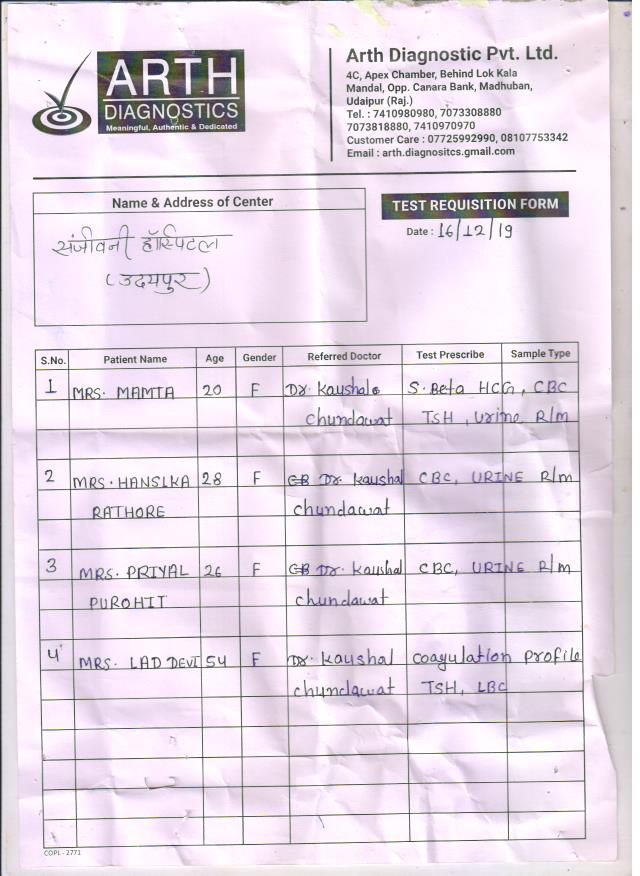 ARTH
DIAGNOSTICS
Meaningful, Authentic & Dedicated
Arth Diagnostic Pvt. Ltd.
4C, Apex Chamber, Behind Lok Kala
Mandal, Opp. Canara Bank, Madhuban,
Udaipur (Raj.)
Tel. : 7410980980, 7073308880
7073818880, 7410970970
Customer Care : 07725992990, 08107753342
Email : arth.diagnositcs.gmail.com
Name & Address of Center
संजीवनी हॉस्पिटल
(उदयपुर)
TEST REQUISITION FORM
Date : 16/12/19
S.No. Patient Name Age Gender Referred Doctor Test Prescribe Sample Type
1 MRS. MAMTA 20 F Dr. Kaushal S. Beta HCG, CBC
chundawat TSH, Urine R/m
2 MRS. HANSIKA 28 F Dr. Kaushal CBC, URINE R/m
RATHORE chundawat
3 MRS. PRIYAL 26 F Dr. Kaushal CBC, URINE R/m
PUROHIT chundawat
4 MRS. LAD DEVI 54 F Dr. Kaushal coagulation profile
chundawat TSH, LBC
COPL - 2771